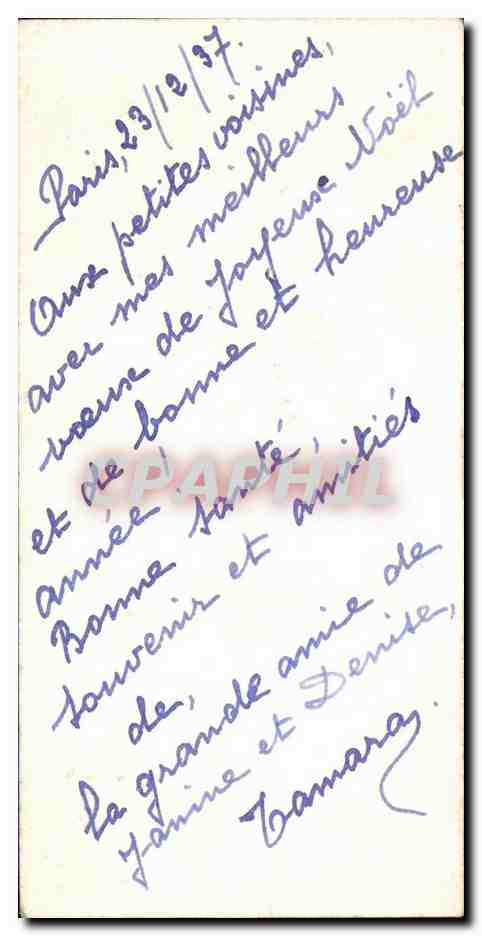 Paris, 23/12/37.
Aux petites voisines,
avec mes meilleurs
voeux de Joyeux Noël
et de bonne et heureuse
année !
Bonne santé,
souvenir et amitiés
de,
la grande amie de
Janine et Denise,
Tamara.
CPAPHIL